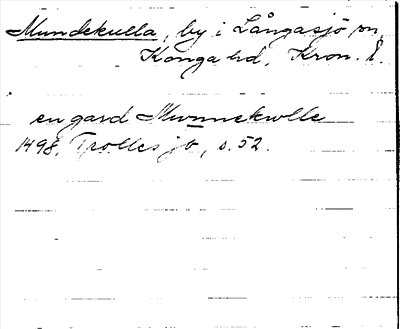 Mundekulla, by i Långasjö sn,
Konga hd. Kron. l.
en gard Munnekwlle
1498. Trolles jb, s. 52.